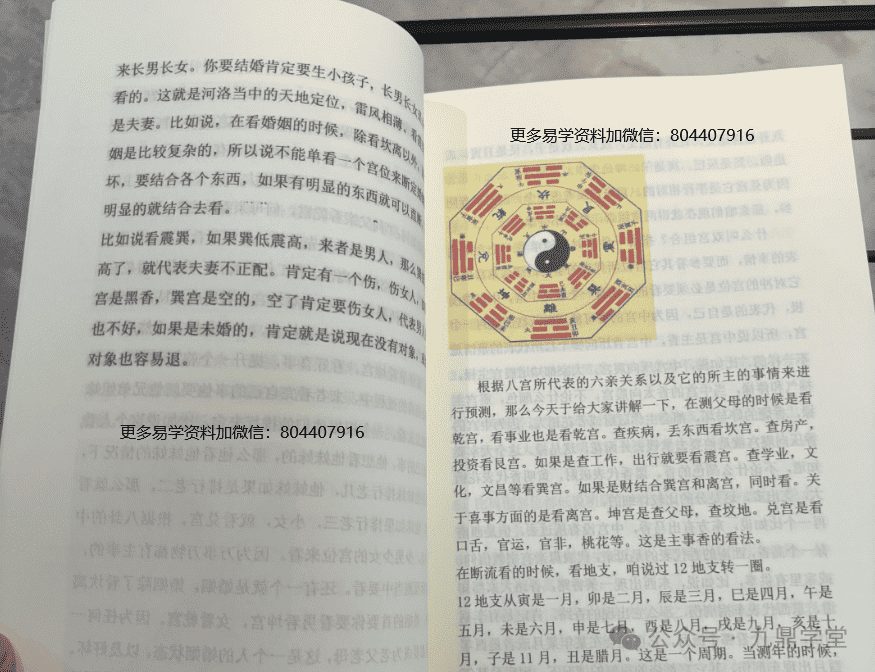 来长男长女。你要结婚肯定要生小孩子，长男长女
看的。这就是河洛当中的天地定位，雷风相薄、
是夫妻。比如说，在看婚姻的时候，除看坎离以外，
姻是比较复杂的，所以说不能单看一个宫位来断定
坏，要结合各个东西，如果有明显的东西就可以直
明显的就结合去看。
比如说看震巽，如果巽低震高，来者是男人，那么
高了，就代表夫妻不正配。肯定有一个伤，伤女人，
宫是黑香，巽宫是空的，空了肯定要伤女人，代表男
也不好，如果是未婚的，肯定就是说现在没有对象，
对象也容易退。
更多易学资料加微信：804407916
更多易学资料加微信：804407916
坎
艮
震
巽
離
坤
兑
乾
根据八宫所代表的六亲关系以及它的所主的事情来进
行预测，那么今天于给大家讲解一下，在测父母的时候是看
乾宫，看事业也是看乾宫。查疾病，丢东西看坎宫。查房产，
投资看艮宫。如果是查工作，出行就要看震宫。查学业，文
化，文昌等看巽宫。如果是财结合巽宫和离宫，同时看。关
于喜事方面的是看离宫。坤宫是查父母，查坟地。兑宫是看
口舌，官运，官非，桃花等。这是主事香的看法。
在断流看的时候，看地支，咱说过12地支转一圈。
12地支从寅是一月，卯是二月，辰是三月，巳是四月，午是
五月，未是六月，申是七月，酉是八月，戌是九月，亥是十
月，子是11月，丑是腊月。这是一个周期。当测年的时候，
公众号·九鼎学堂